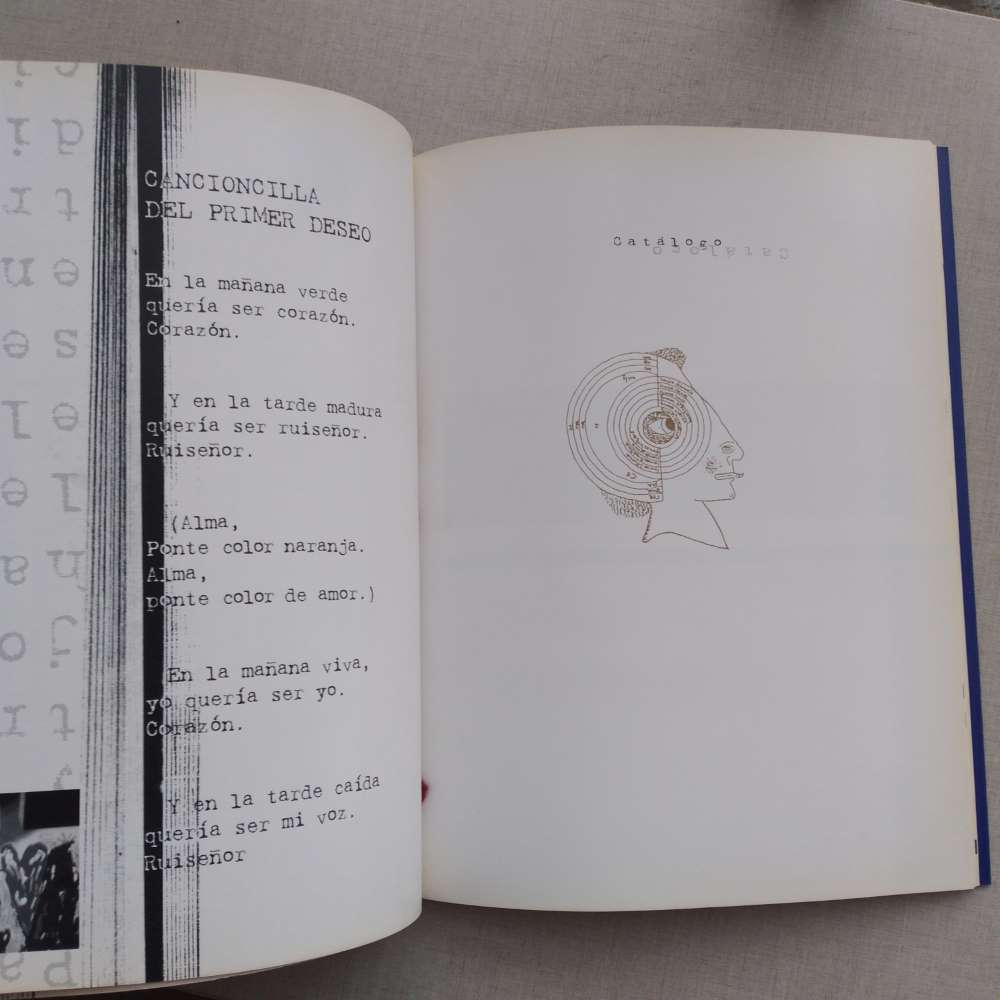 CANCIONCILLA
DEL PRIMER DESEO
En la mañana verde
quería ser corazón.
Corazón.
Y en la tarde madura
quería ser ruiseñor.
Ruiseñor.
(Alma,
Ponte color naranja.
Alma,
ponte color de amor.)
En la mañana viva,
yo quería ser yo.
Corazón.
Y en la tarde caída
quería ser mi voz.
Ruiseñor
Catálogo
Catálogo